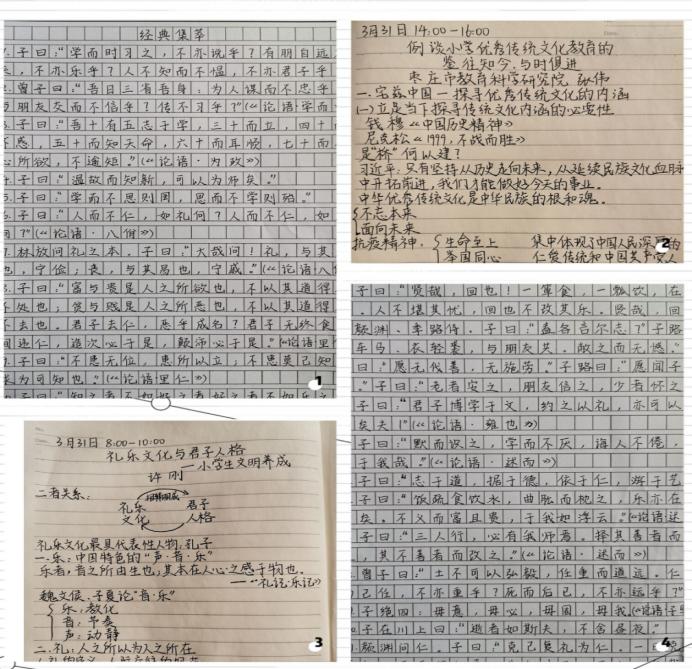 经典集萃
子曰:“学而时习之,不亦说乎?有朋自远
,不亦乐乎?人不知而不愠,不亦君子乎
曾子曰:“吾日三省吾身:为人谋而不忠乎
与朋友交而不信乎?传不习乎?”(《论语·学而
子曰:“吾十有五志于学,三十而立,四十
惑,五十而知天命,六十而耳顺,七十而
心所欲,不逾矩。”(《论语·为政》)
子曰:“温故而知新,可以为师矣。”
子曰:“学而不思则罔,思而不学则殆。”
子曰:“人而不仁,如礼何?人而不仁,如
何?”(《论语·八佾》)
林放问礼之本。子曰:“大哉问!礼,与其
也,宁俭;丧,与其易也,宁戚。”(《论语八
子曰:“富与贵是人之所欲也,不以其道得
不处也;贫与贱是人之所恶也,不以其道得
不去也。君子去仁,恶乎成名?君子无终食
间违仁,造次必于是,颠沛必于是。”《论语里
子曰:“不患无位,患所以立;不患莫己知
求为可知也。”(《论语里仁》)
子曰:“知之者不如好之者,好之者不如乐之
1
3月31日 14:00-16:00
例谈小学优秀传统文化教育的
鉴往知今,与时俱进
枣庄市教育科学研究院 张伟
一.宅兹中国—探寻优秀传统文化的内涵
(一)立足当下探寻传统文化内涵的必要性
钱穆《中国历史精神》
尼克松《1999,不战而胜》
是“桥”何以建?
习近平:只有坚持从历史走向未来,从延续民族文化血脉
中开拓前进,我们才能做好今天的事业。
中华优秀传统文化是中华民族的根和魂。
不忘本来
面向未来
抗疫精神: 生命至上 集中体现了中国人民深厚的
举国同心 仁爱传统和中国共产党人
2
3月31日 8:00-10:00
礼乐文化与君子人格
—小学生文明养成
许刚
二者关系:
礼乐 君子
文化 人格
礼乐文化最具代表性人物:孔子
一.乐:中国特色的“声·音·乐”
乐者,音之所由生也,其本在人心之感于物也。
——《礼记·乐记》
魏文侯、子夏论“音·乐”
乐:教化
音:节奏
声:动静
二.礼:人之所以为人之所在
3
子曰:“贤哉,回也!一箪食,一瓢饮,在
,人不堪其忧,回也不改其乐。贤哉,回
颜渊、季路侍。子曰:“盍各言尔志?”子路
车马、衣轻裘,与朋友共。敝之而无憾。”
曰:“愿无伐善,无施劳。”子路曰:“愿闻子
”子曰:“老者安之,朋友信之,少者怀之
子曰:“君子博学于文,约之以礼,亦可以
矣夫!”(《论语·雍也》)
子曰:“默而识之,学而不厌,诲人不倦,
于我哉。”(《论语·述而》)
子曰:“志于道,据于德,依于仁,游于艺
子曰:“饭疏食饮水,曲肱而枕之,乐亦在
矣。不义而富且贵,于我如浮云。”《论语述
子曰:“三人行,必有我师焉。择其善者而
,其不善者而改之。”(《论语·述而》)
曾子曰:“士不可以弘毅,任重而道远。仁
己任,不亦重乎?死而后已,不亦远乎?”
子绝四:毋意,毋必,毋固,毋我(《论语子
子在川上曰:“逝者如斯夫,不舍昼夜。”
颜渊问仁。子曰:“克己复礼为仁。一
4